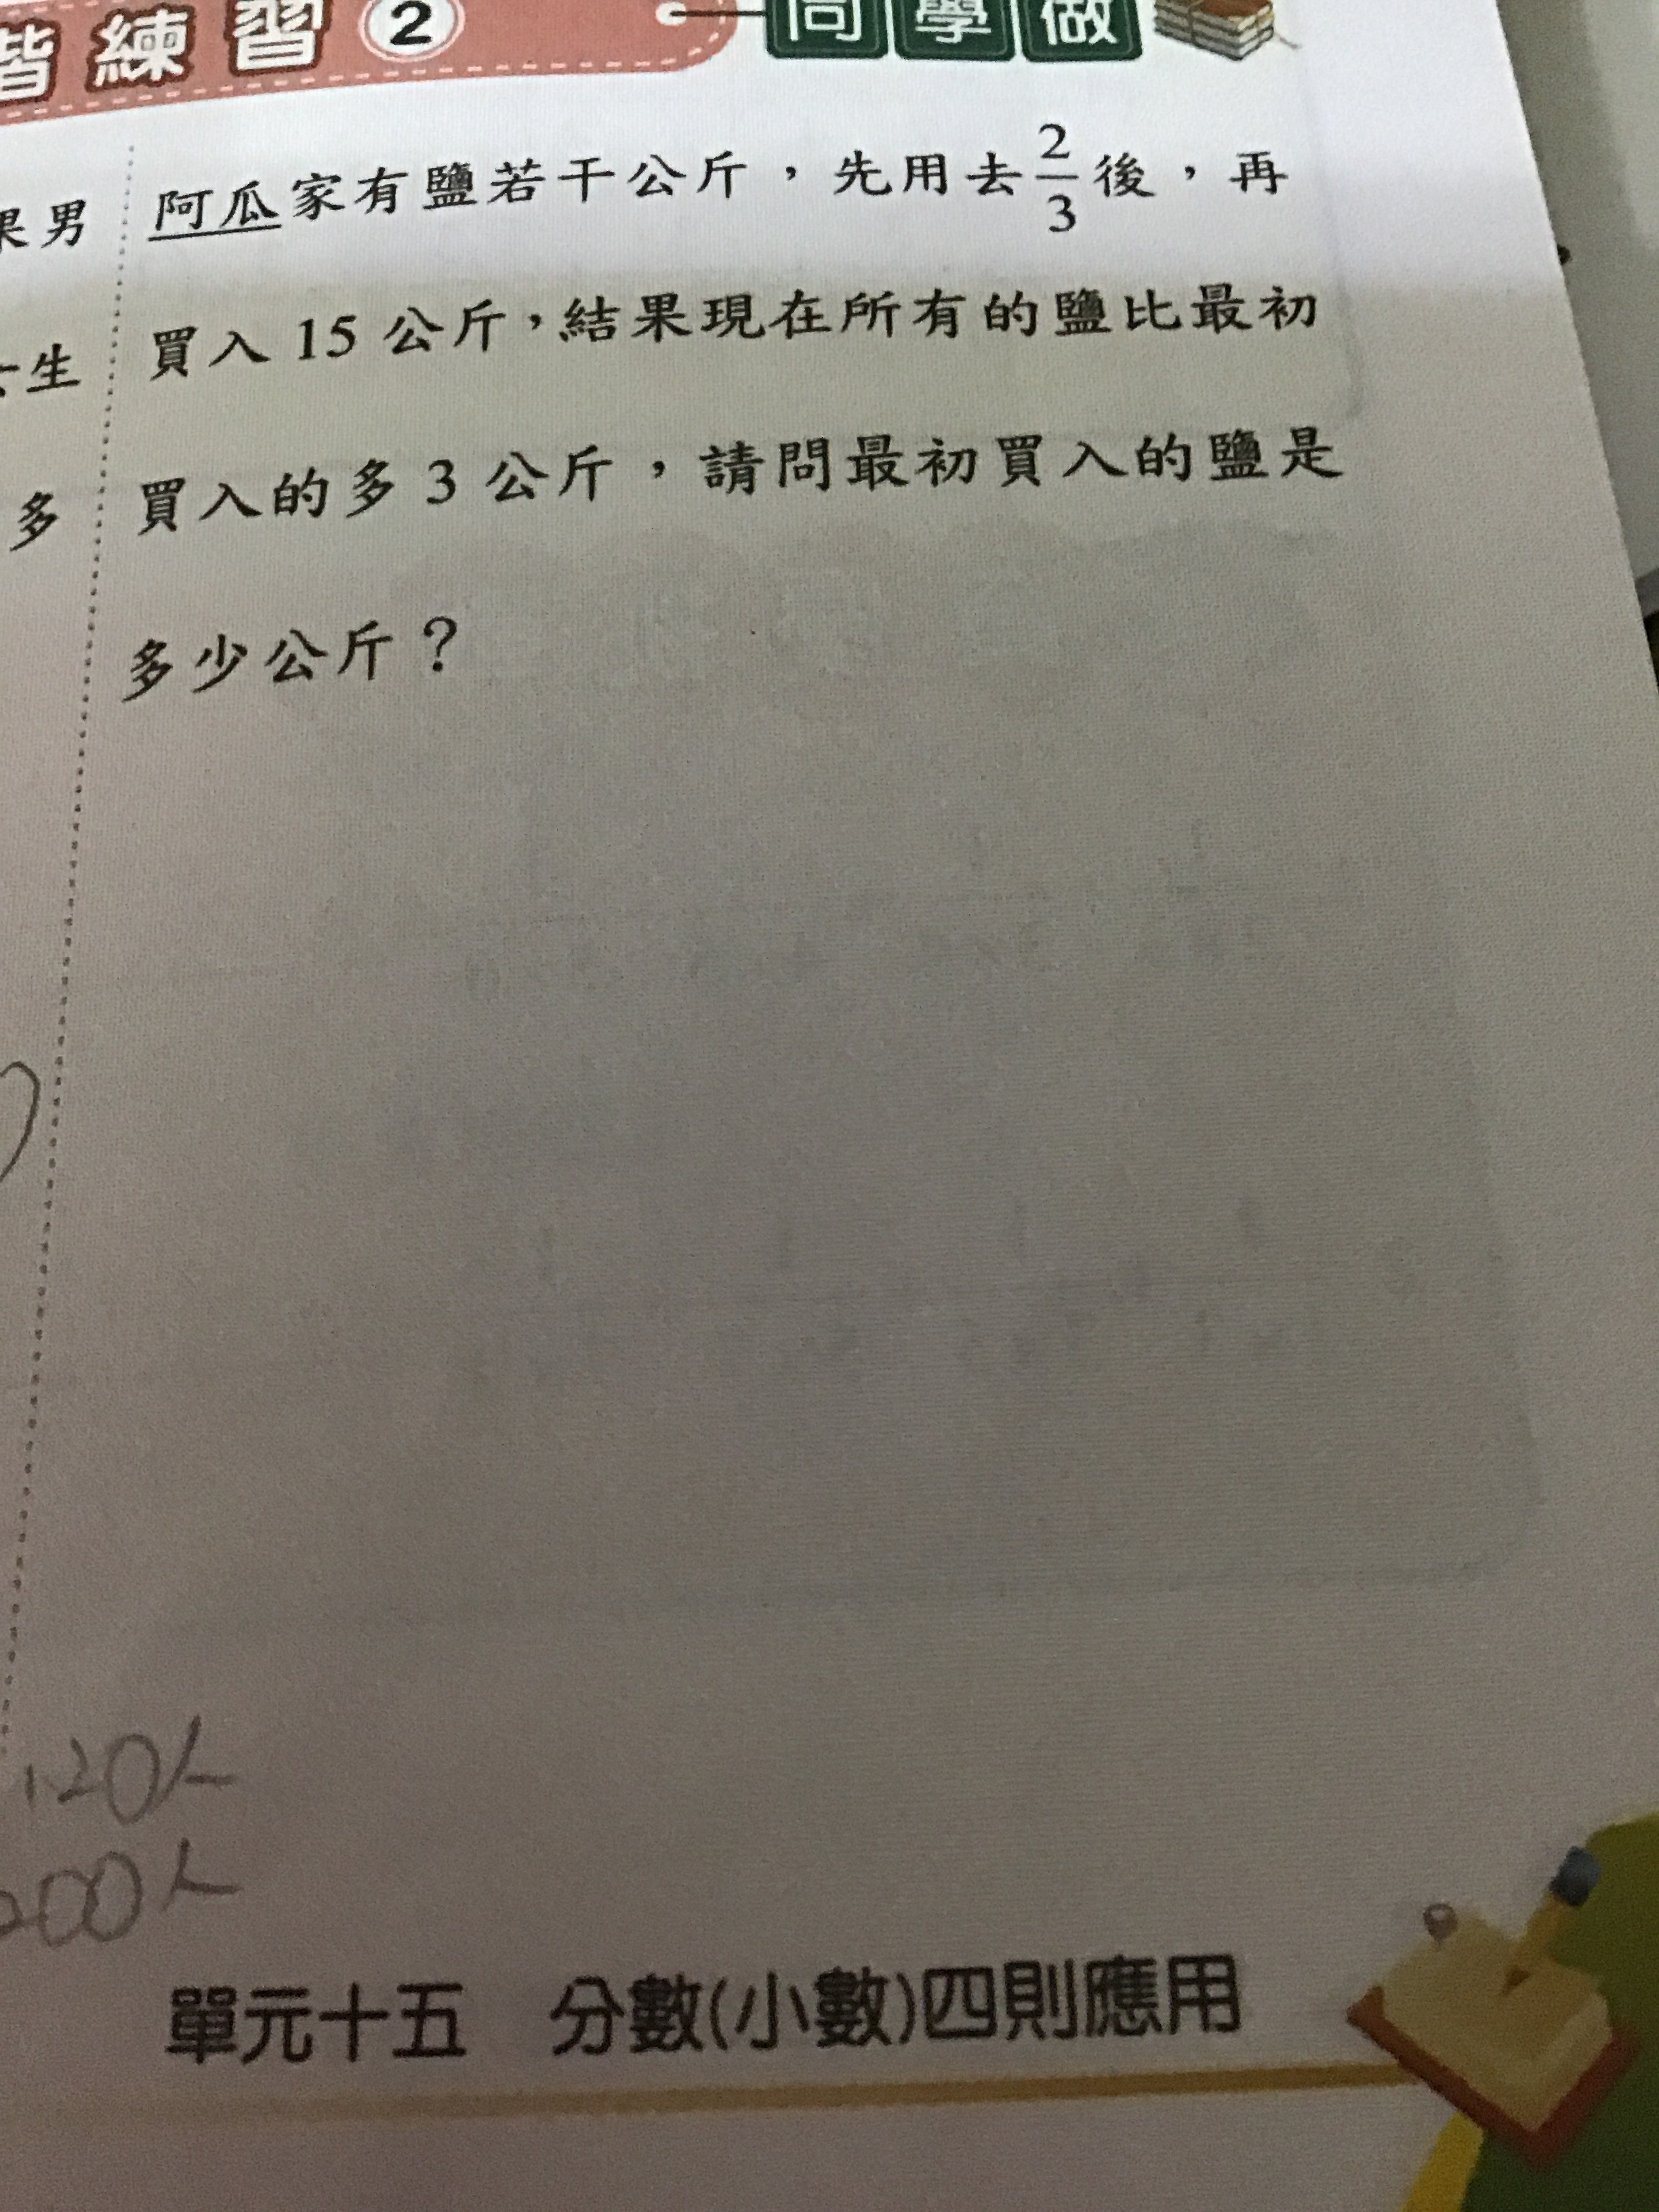 階練習 2 同學做
阿瓜家有鹽若干公斤，先用去2/3後，再
買入 15 公斤，結果現在所有的鹽比最初
買入的多 3 公斤，請問最初買入的鹽是
多少公斤？
果男
生
多
120人
200人
單元十五 分數(小數)四則應用